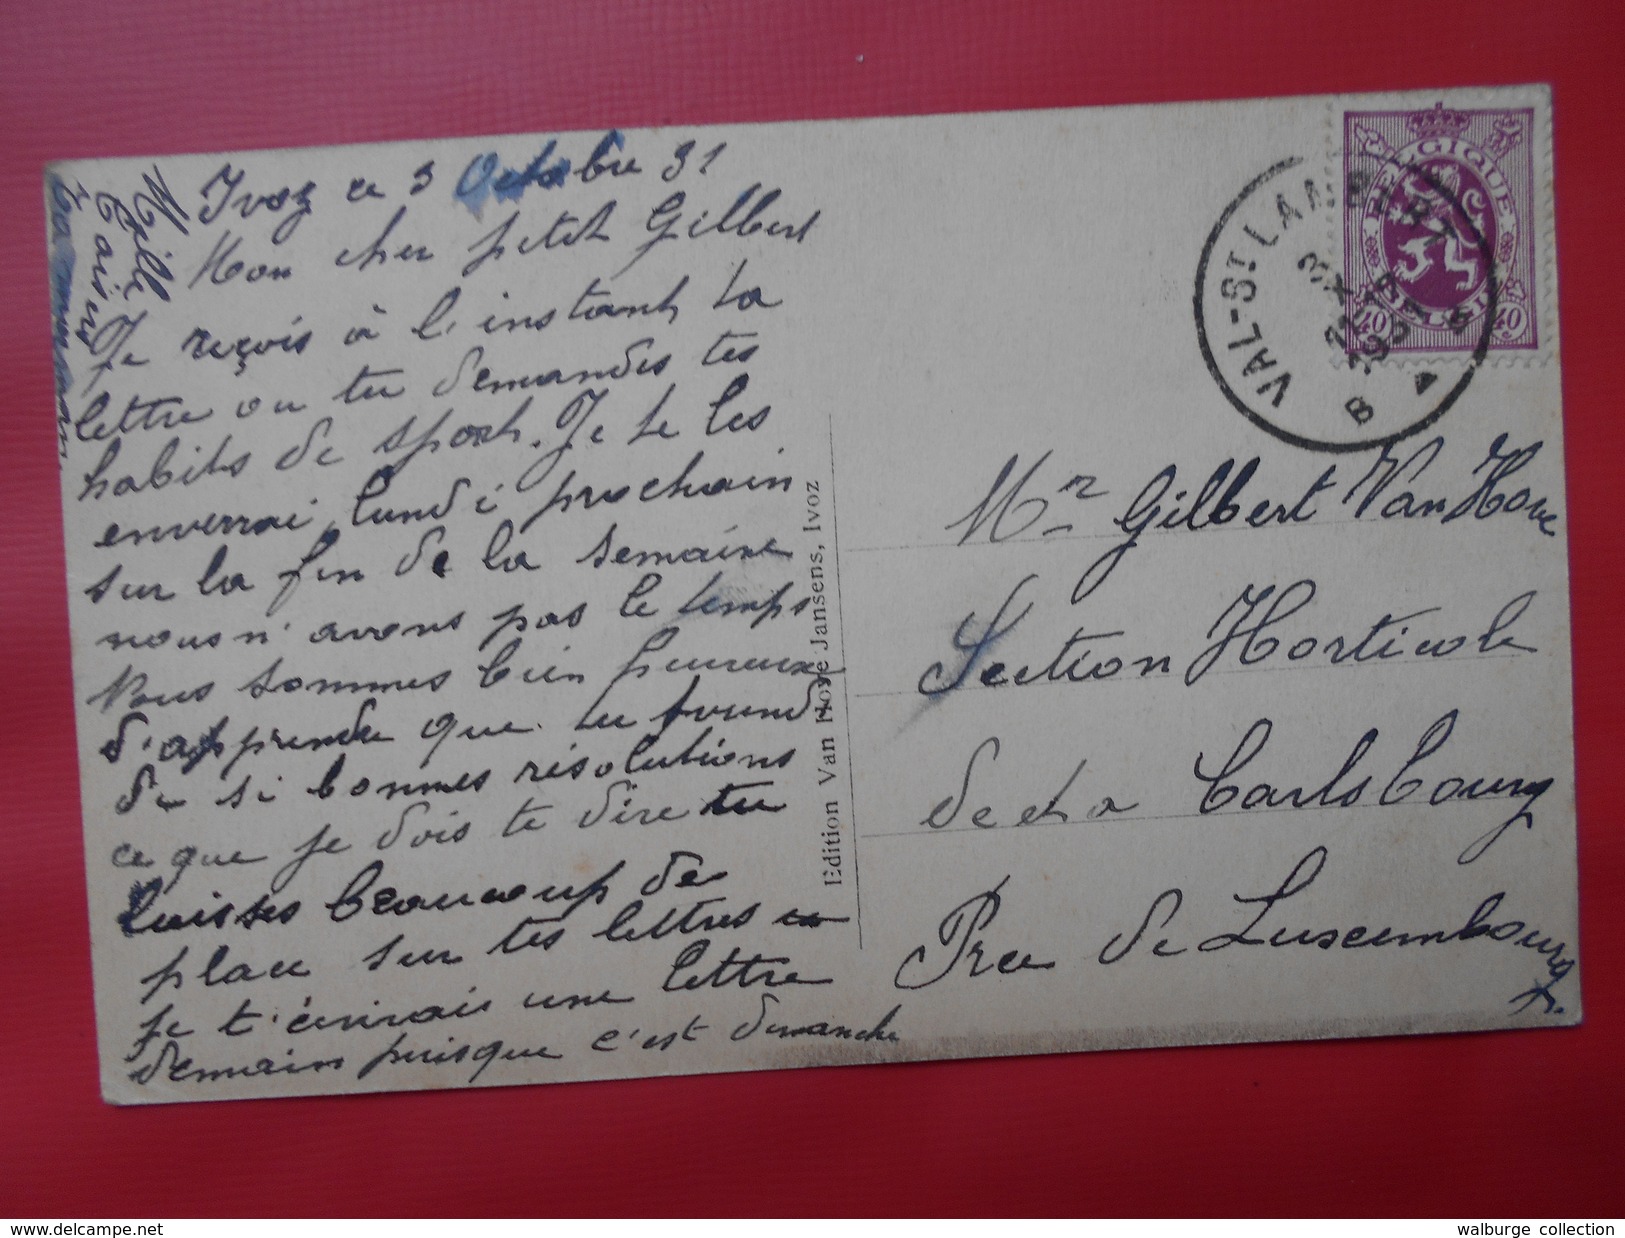 Ivoz ce 3 Octobre 31
Mon cher petit Gilbert
Je reçois à l'instant ta
lettre ou tu demandes tes
habits de sport. Je te les
enverrai lundi prochain
sur la fin de la semaine
nous n'avons pas le temps
Nous sommes bien heureux
d'apprendre que tu prends
de si bonnes résolutions
ce que je dois te dire tu
laisses beaucoup de
place sur tes lettres
je t'écrirais une lettre
demain puisque c'est dimanche
Mille
baisers
Ta maman
Edition Van Hove Jansens, Ivoz
BELGIQUE
BELGIE
40 40
VAL-ST LAMBERT
3 X
1931
B
Mr Gilbert Van Hove
Section Horticole
de et à Carlsbourg
Prce de Luxembourg
www.delcampe.net
walburge collection